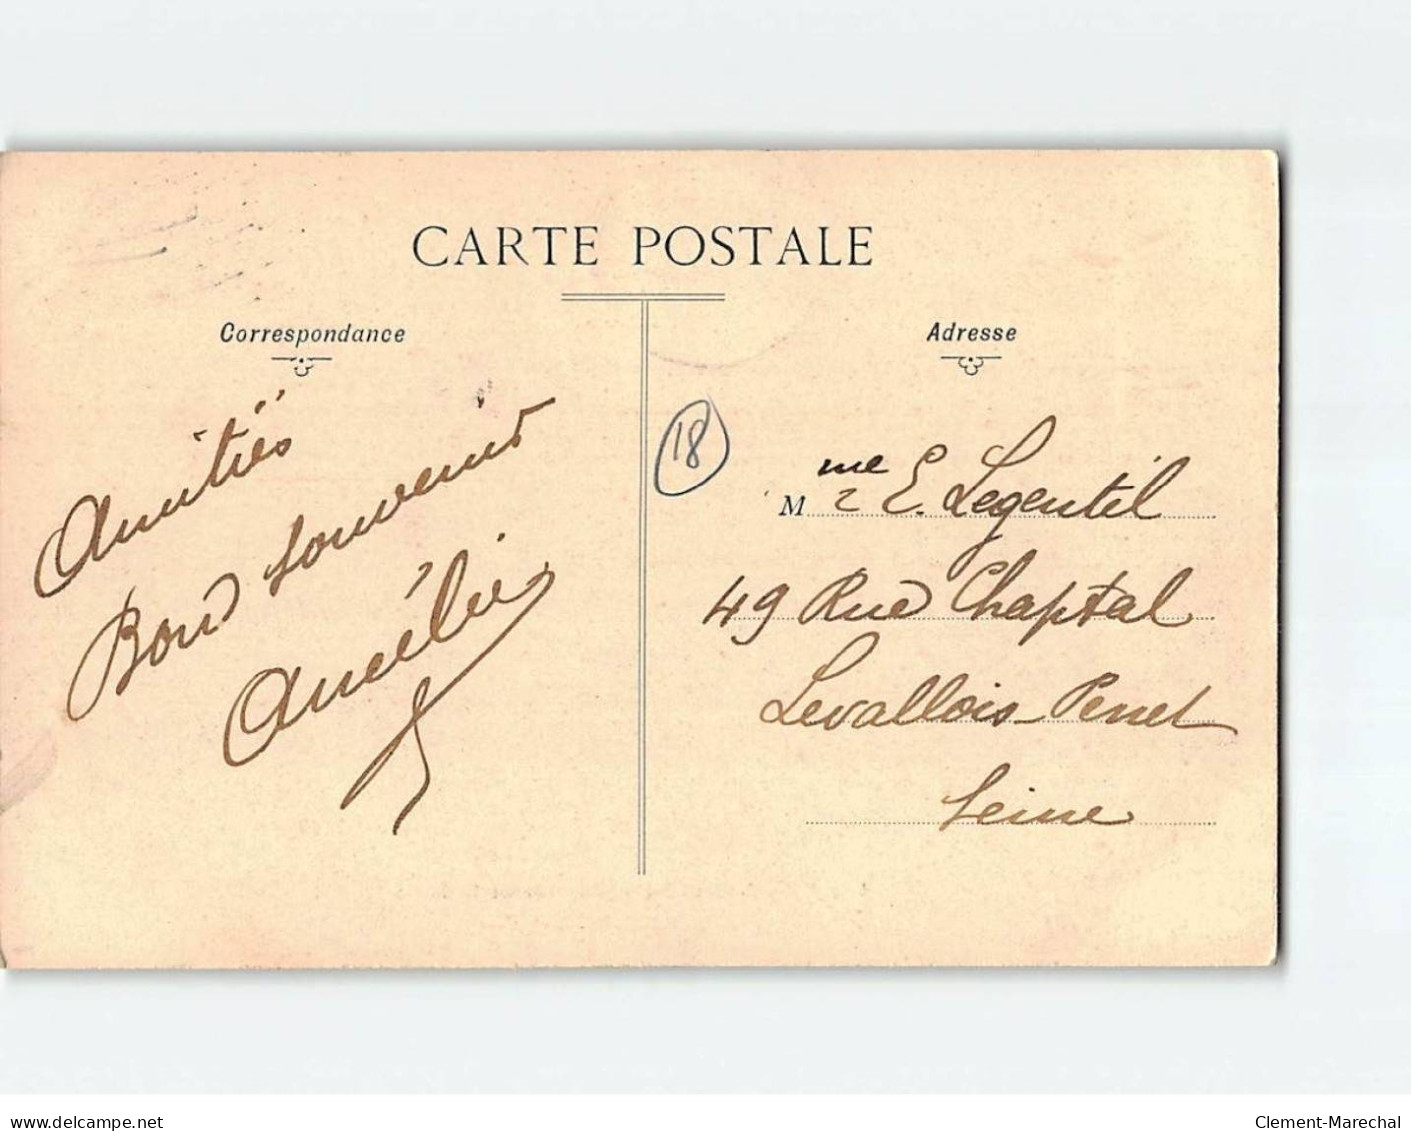 CARTE POSTALE
Correspondance
Amitiés
Bons souvenirs
Amélie
Adresse
18
Mme E. Legentil
49 Rue Chaptal
Levallois-Perret
Seine
delcampe.net
Clement-Marechal